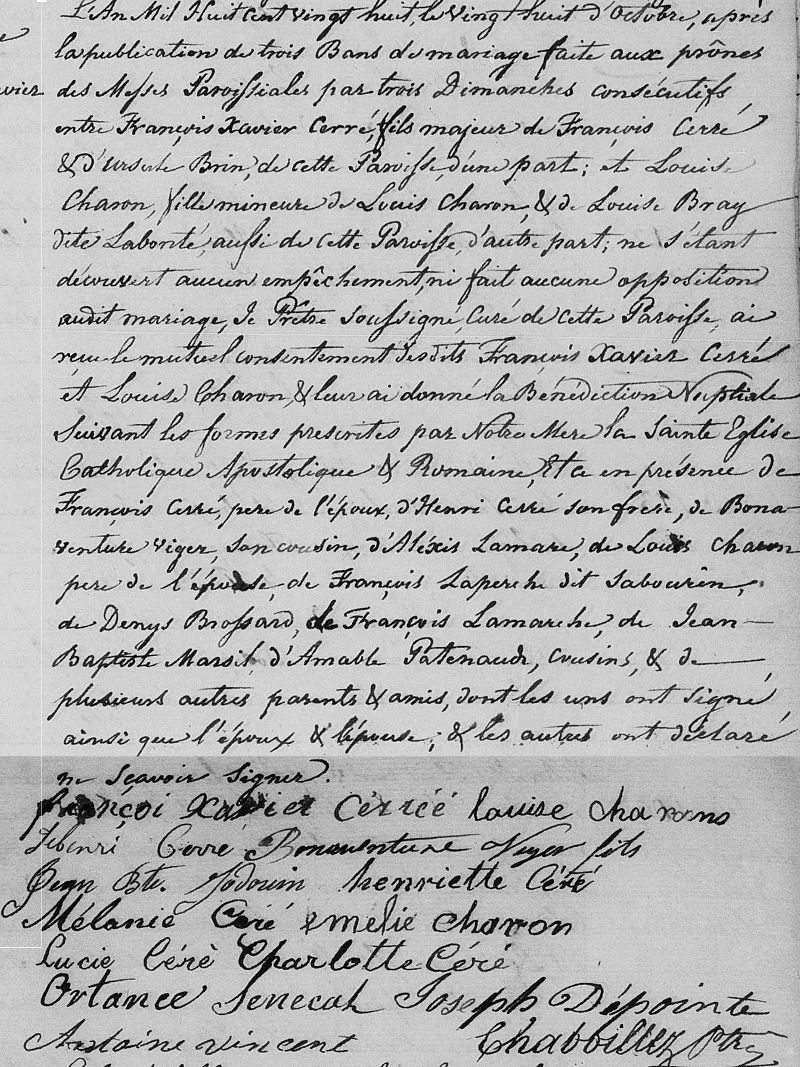 L'An Mil Huit cent vingt huit, le vingt huit d'Octobre, après
la publication de trois Bans de mariage faite aux prônes
des Messes Paroissiales par trois Dimanches consécutifs,
entre François Xavier Cerré, fils majeur de François Cerré
& d'Ursule Brin, de cette Paroisse, d'une part; et Louise
Charon, fille mineure de Louis Charon, & de Louise Bray
dite Labonté, aussi de cette Paroisse, d'autre part; ne s'étant
découvert aucun empêchement, ni fait aucune opposition
audit mariage, Je Prêtre Soussigné, Curé de cette Paroisse, ai
reçu le mutuel consentement desdits François Xavier Cerré
et Louise Charon, & leur ai donné la Bénédiction Nuptiale
Suivant les formes prescrites par Notre Mere la Sainte Eglise
Catholique Apostolique & Romaine, Et ce en présence de
François Cerré, pere de l'époux, d'Henri Cerré son frere, de Bona-
venture Viger, son cousin, d'Aléxis Lamare, de Louis Charon
pere de l'épouse, de François Laperche dit Sabourin,
de Denys Brossard, de François Lamarche, de Jean-
Baptiste Marsil, d'Amable Patenaude, cousins, & de
plusieurs autres parents & amis, dont les uns ont signé
ainsi que l'époux & l'épouse; & les autres ont déclaré
ne Sçavoir Signer.
françoi Xavier Cérréé louise charons
henri Cerré Bonaventure Viger fils
Jean Bte. Jodouin henriette Céré
Mélanie Ceré emelie charon
Lucie Céré Charlotte Céré
Ortance Senecal Joseph Dépointe
Antoine vincent Chaboillez Ptre